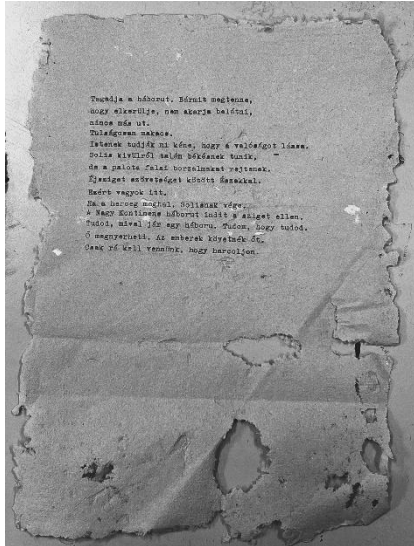 Tagadja a háborut. Bármit megtenne,
hogy elkerülje, nem akarja belátni,
nincs más ut.
Tulságosan makacs.
Istenek tudják mi kéne, hogy a valóságot lássa.
Solis kivülről talán békésnek tunik,
de a palota falai borzalmakat rejtenek.
Éjsziget szövetséget kötött Északkal.
Ezért vagyok itt.
Ha a herceg meghal, Solisnak vége.
A Nagy Kontinens háborut indit a sziget ellen.
Tudod, mivel jár egy háboru. Tudom, hogy tudod.
Ő megnyerheti. Az emberek követnék őt.
Csak rá kell vennünk, hogy harcoljon.